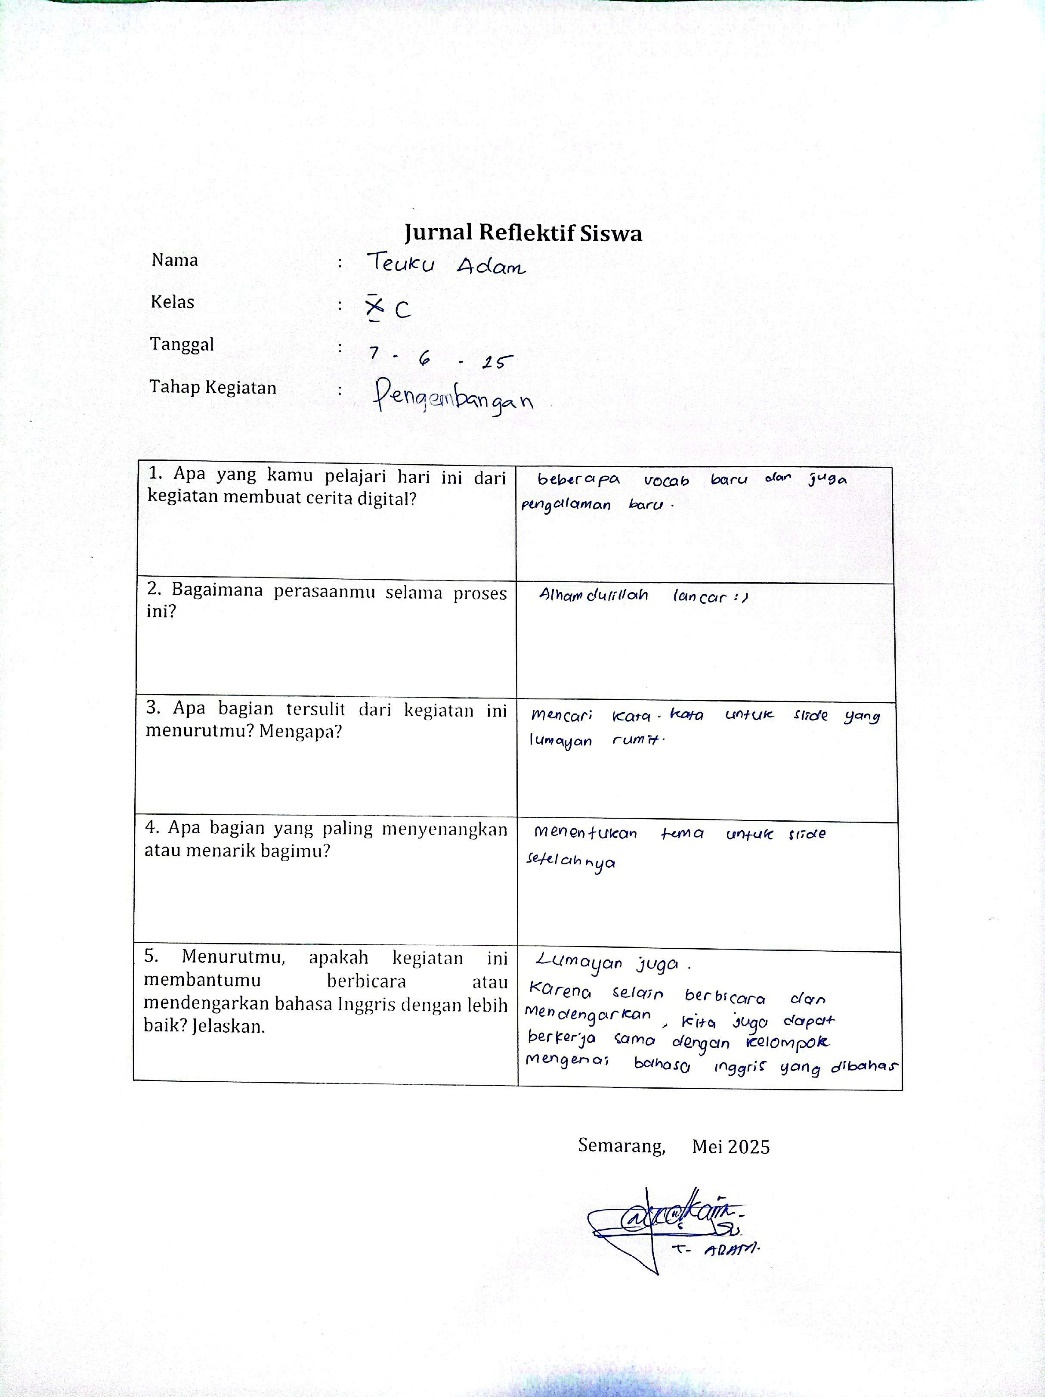 Jurnal Reflektif Siswa
Nama : Teuku Adam
Kelas : X C
Tanggal : 7 - 6 - 25
Tahap Kegiatan : Pengembangan
1. Apa yang kamu pelajari hari ini dari
kegiatan membuat cerita digital?
beberapa vocab baru dan juga
pengalaman baru.
2. Bagaimana perasaanmu selama proses
ini?
Alhamdulillah lancar :)
3. Apa bagian tersulit dari kegiatan ini
menurutmu? Mengapa?
mencari kata-kata untuk slide yang
lumayan rumit.
4. Apa bagian yang paling menyenangkan
atau menarik bagimu?
Menentukan tema untuk slide
setelahnya
5. Menurutmu, apakah kegiatan ini
membantumu berbicara atau
mendengarkan bahasa Inggris dengan lebih
baik? Jelaskan.
Lumayan juga.
Karena selain berbicara dan
Mendengarkan, kita juga dapat
berkerja sama dengan kelompok
mengenai bahasa inggris yang dibahas
Semarang, Mei 2025
T- ADAM.